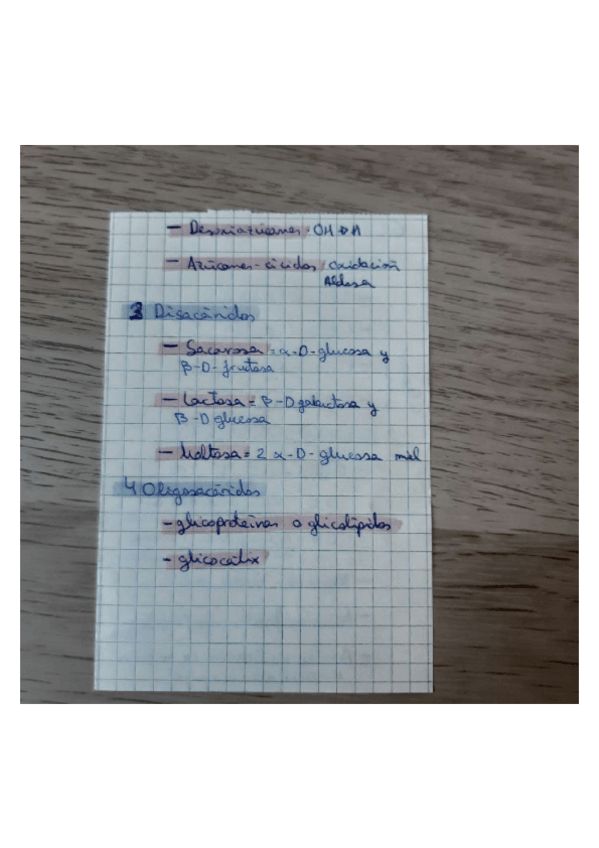 - Desoxiazúcares: OH → H
- Azúcares-ácidos: oxidación
Aldosa
3 Disacáridos
- Sacarosa = α-D-glucosa y
β-D-fructosa
- Lactosa = β-D galactosa y
β-D glucosa
- Maltosa = 2 α-D-glucosa
4 Oligosacáridos
- glicoproteínas o glicolípidos
- glicocálix